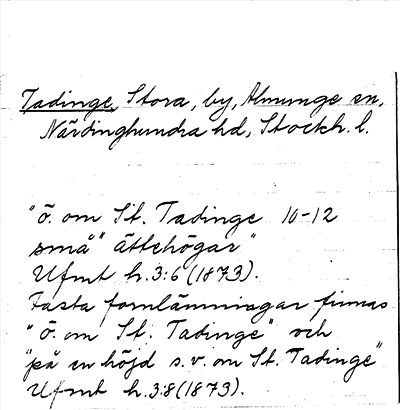 Tadinge, Stora, by, Almunge sn,
Närdinghundra hd, Stockh. l.
"ö. om St. Tadinge 10-12
små" ättehögar"
Ufmt h.3:6 (1873).
Fasta fornlämningar finnas
"ö. om St. Tadinge" och
"på en höjd s.v. om St. Tadinge"
Ufmt h.3:8 (1873).